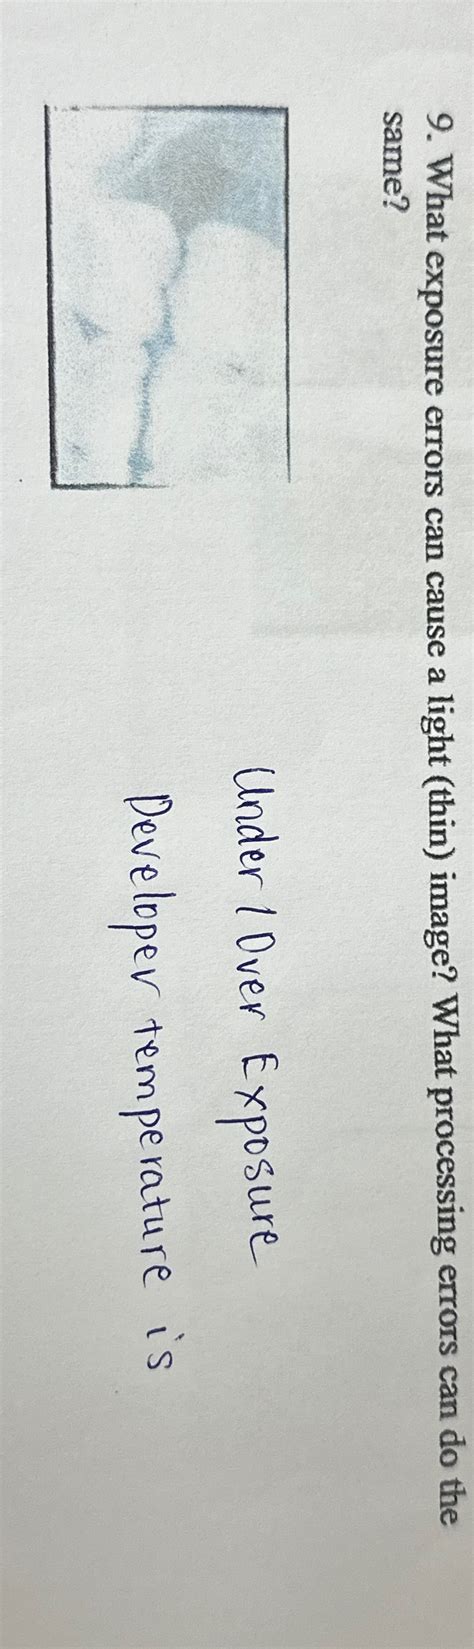 9. What exposure errors can cause a light (thin) image? What processing errors can do the
same?
Under / Over Exposure
Developer temperature is